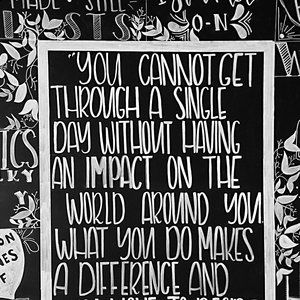 MADE STILL
ON
"YOU CANNOT GET
THROUGH A SINGLE
DAY WITHOUT HAVING
AN IMPACT ON THE
WORLD AROUND YOU.
WHAT YOU DO MAKES
A DIFFERENCE AND